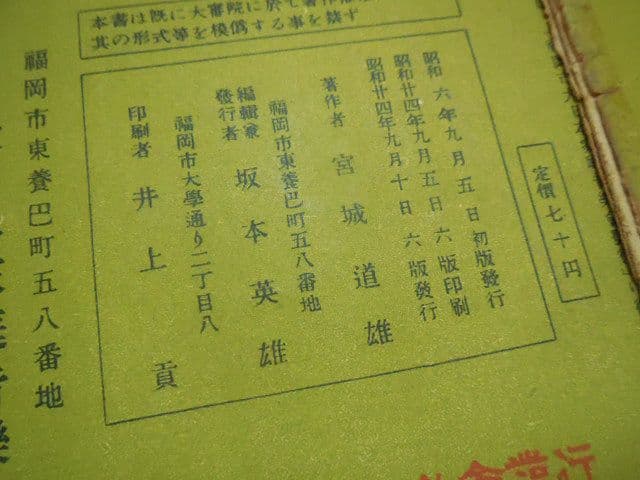 定價七十円
昭和六年九月五日初版發行
昭和廿四年九月五日六版印刷
昭和廿四年九月十日六版發行
著作者 宮城道雄
福岡市東養巴町五八番地
編輯兼發行者 坂本英雄
福岡市大學通り二丁目八
印刷者 井上貢
本書は既に大審院に於て著作
其の形式等を模僞する事を禁ず
福岡市東養巴町五八番地